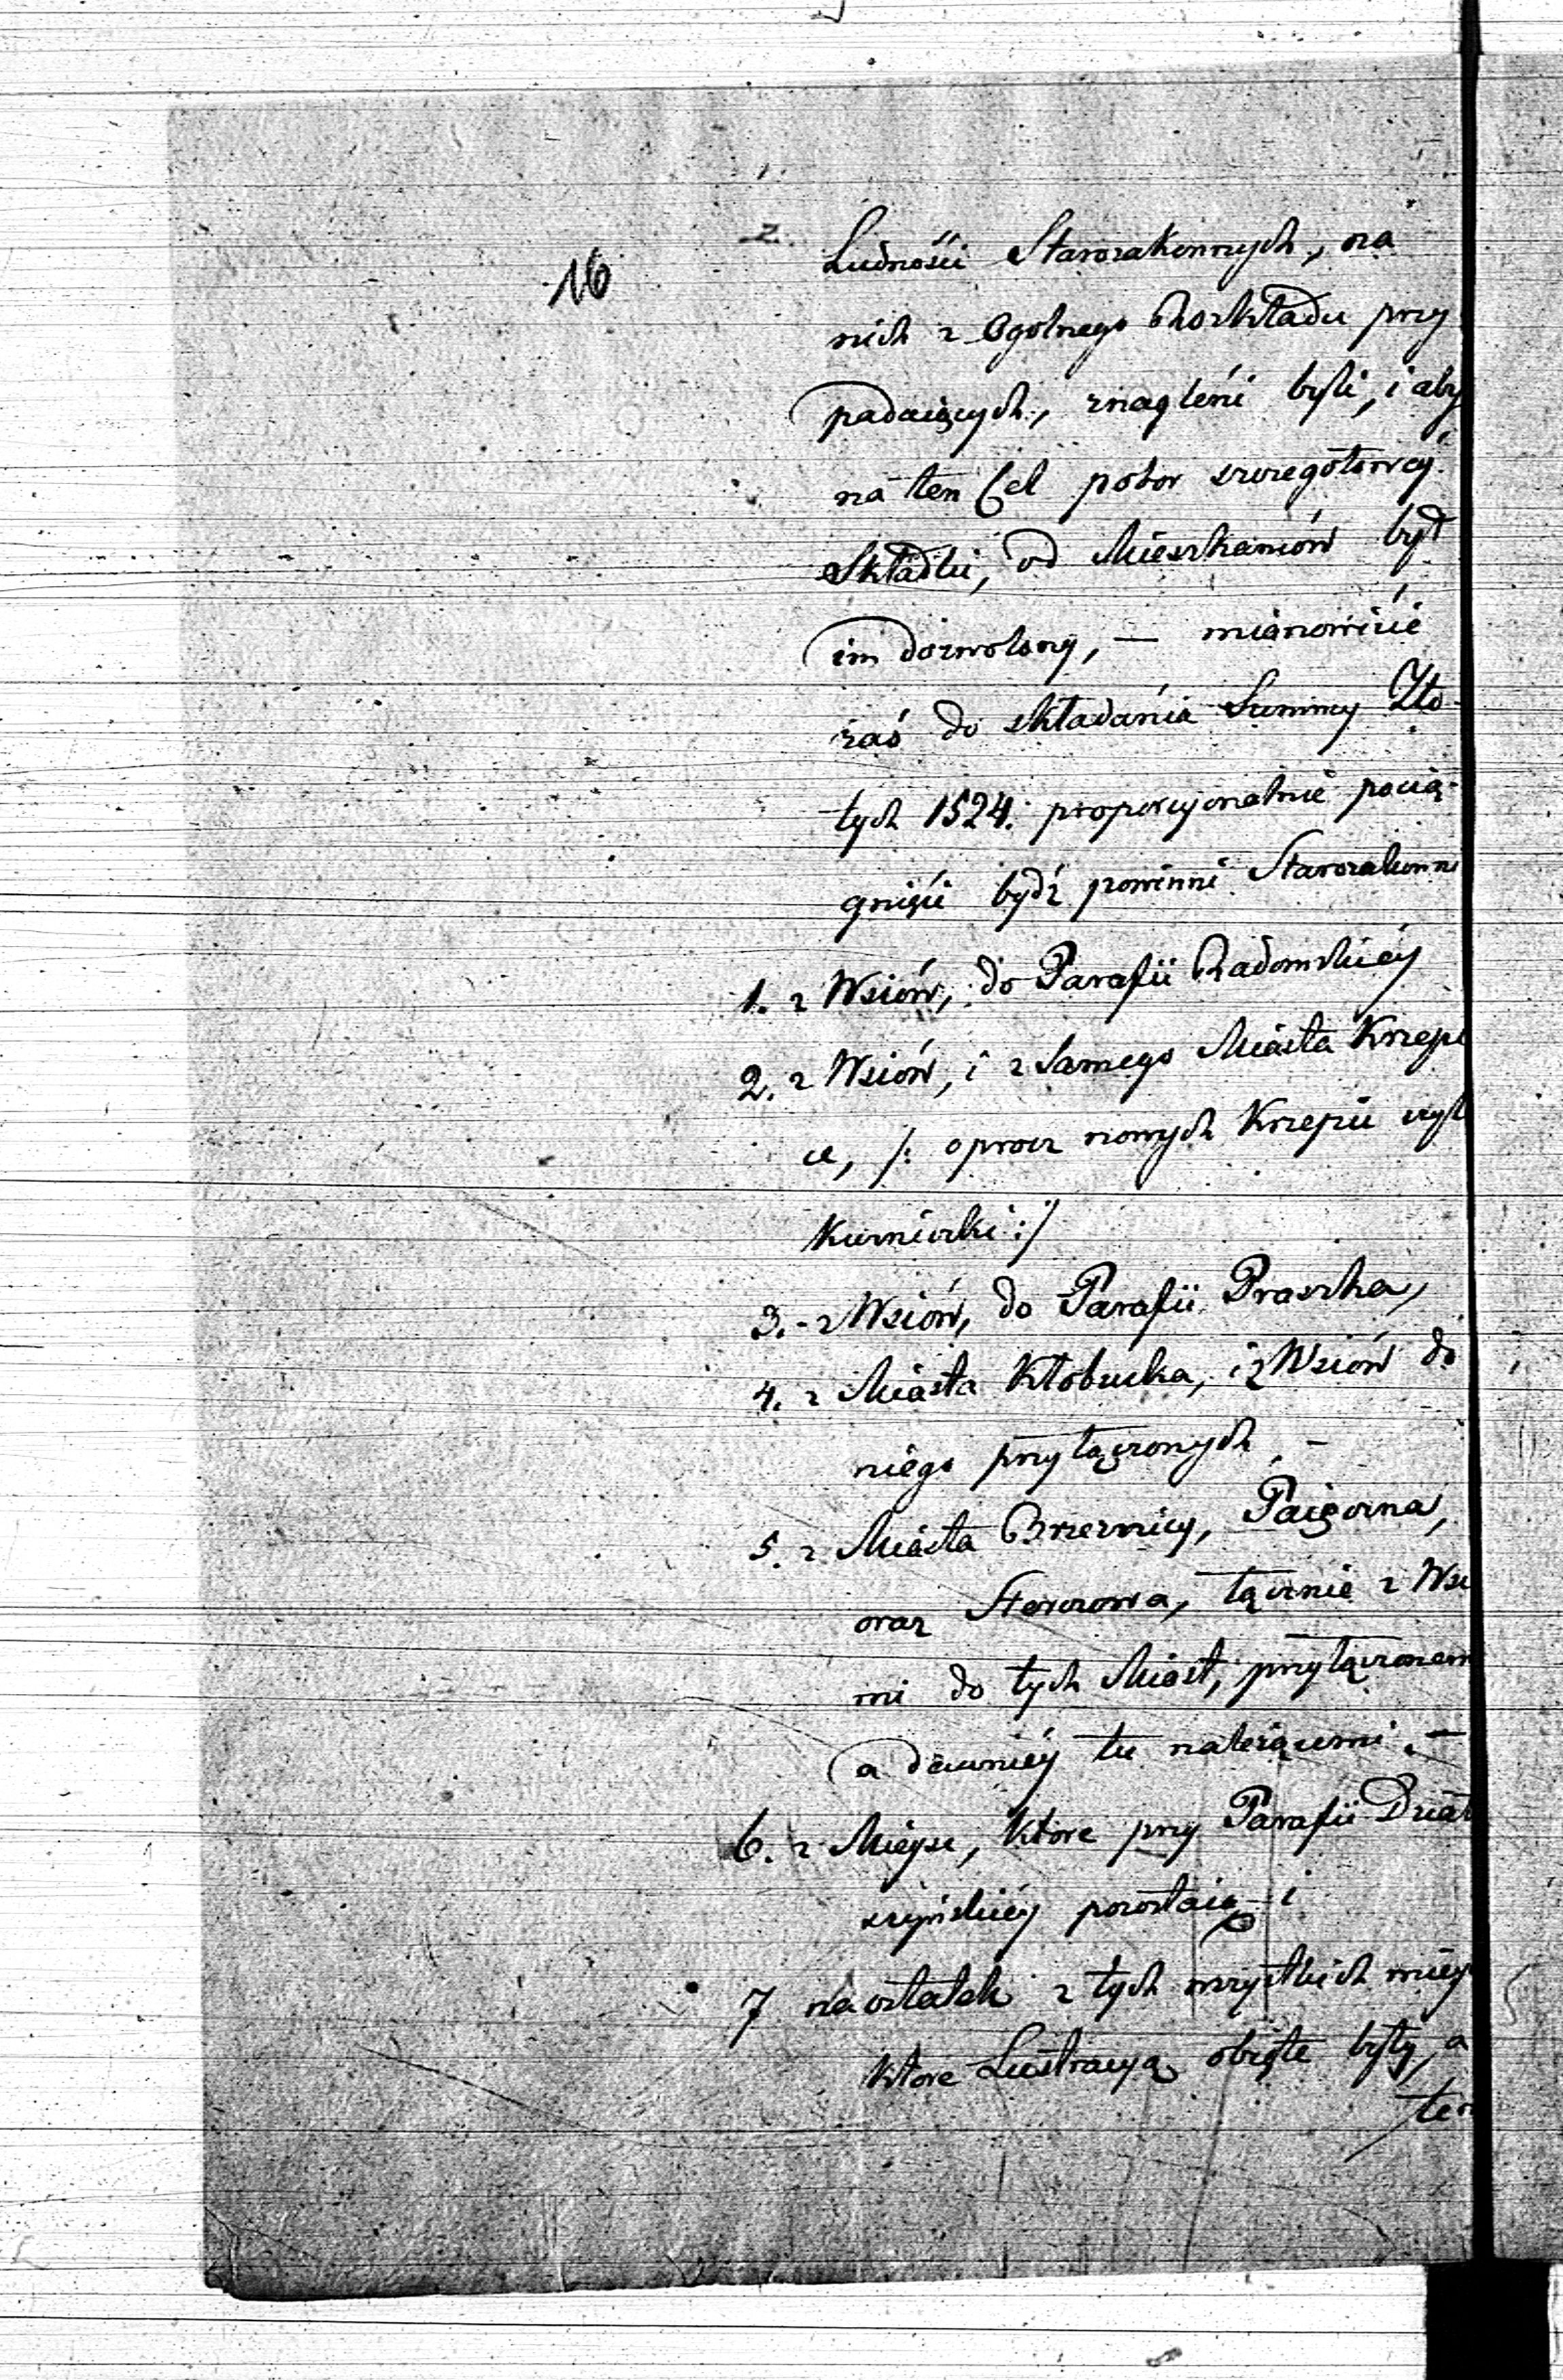 16
Ludności Starozakonnych, na
nich z Ogolnego Rozkładu przy
padaiących, znagleni byli, i aby
na ten Cel pobor szczegołowéy
Składki, od Mieszkancow był
im dozwolony, — mianowicie
zaś do składania Summy Zło-
tych 1524. proporcyonalnie pocią-
gnięci bydź powinni Starozakonni
1. z Wsiów, do Parafii Radomskiéy
2. z Wsiów, i z Samego Miasta Krzepi
ce, /: oprocz nowych Krzepic czyl
Kuzniczki :/
3. - z Wsiów, do Parafii Praszka,
4. z Miasta Kłobucka, i z Wsiów do
niego przyłączonych, -
5. z Miasta Brzeznicy, Paięczna,
oraz łącznie z Wsi
mi do tych Miast, przyłączonem
a dawniéy tu należącemi. —
6. z Mieysc, które przy Parafii Dział
szyńskiéy pozostaią i
7 na ostatek z tych wszystkich miéy
które Lustracyą obięte były, a
ten